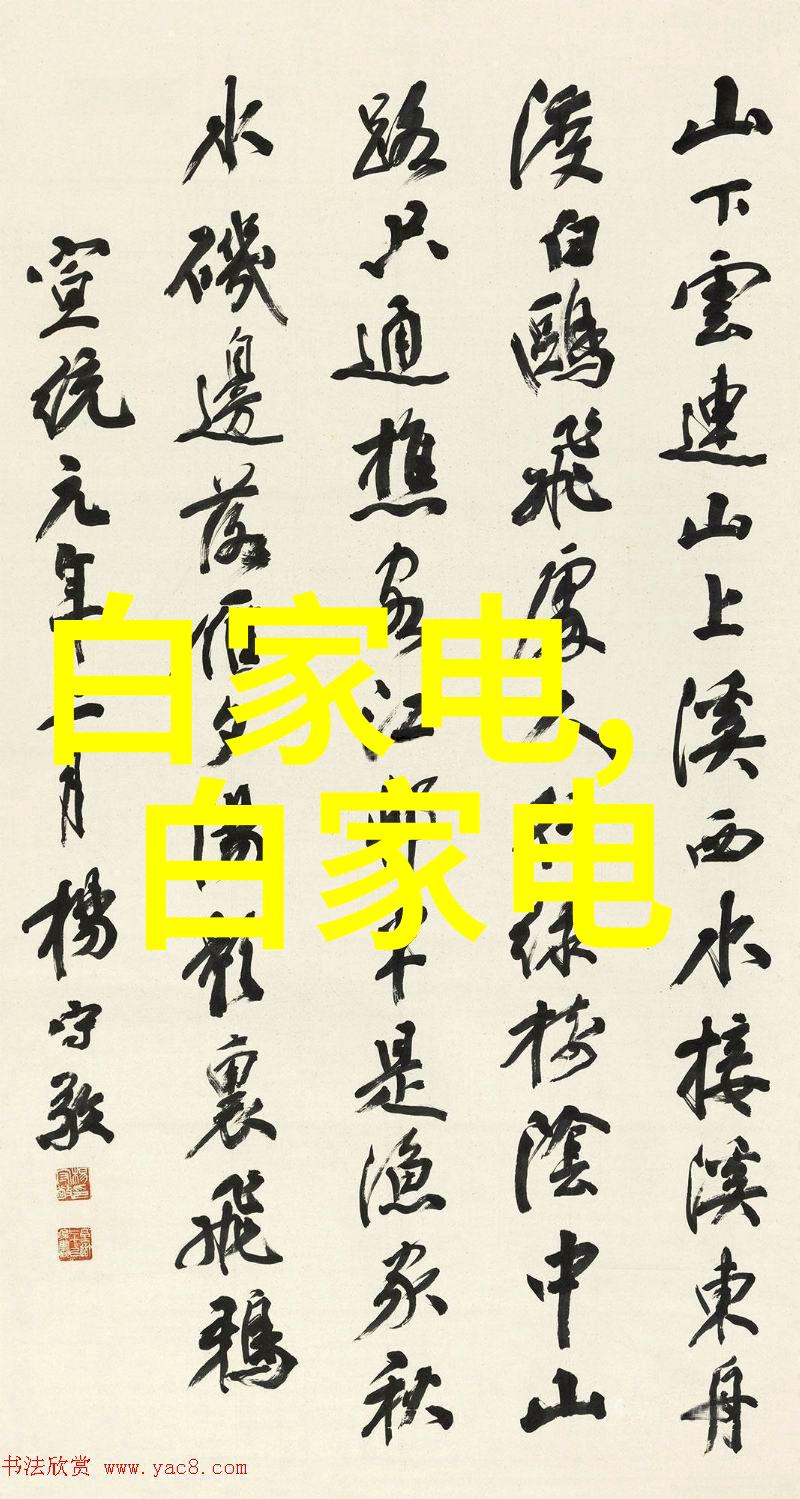 山下雲連山上溪西水接溪東舟
渡白鷗飛處人行綠樹陰中山
路只通樵客江半是漁家秋
水磯邊落雁夕陽影裏飛鴉
宣統元年月楊守敬
白家电,
白家电
书法欣赏 www.yac8.com